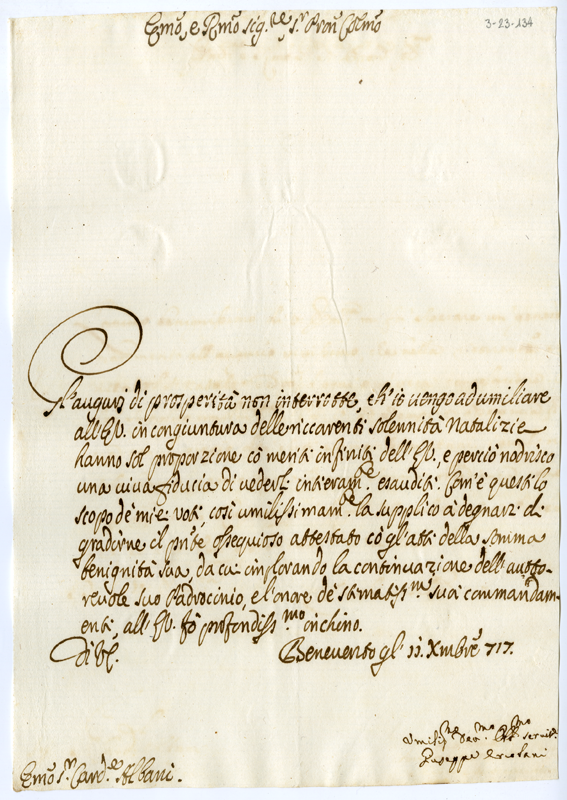 Emo, e Rmo Sig.re Sr. Pron Colmo
3-23-134
Gl'augurj di prosperità non interrotte, ch'io vengo ad umiliare
all'E.V. in congiuntura delle riccorrenti solennità Natalizie
hanno sol proporzione có meriti infiniti dell'E.V., e perciò nodrisco
una viva fiducia di vederli interam.te esauditi. Com'è questi lo
scopo de miei voti, così umilissimam.te la supplico à degnarsi di
gradirne il pnte ossequioso attestato có gl'atti della somma
benignità sua, da cui implorando la continuazione dell'autto-
revole suo Padrocinio, e l'onore de stimatiss.mi suoi commandam-
enti, all'E.V. fò profondiss.mo inchino.
Di V.E.
Benevento gl' 11. Xmbre 717.
Umiliss.mo Devo.mo Obb.mo Servit.
Giuseppe Ercolani
Emo Sr. Card.le Albani.